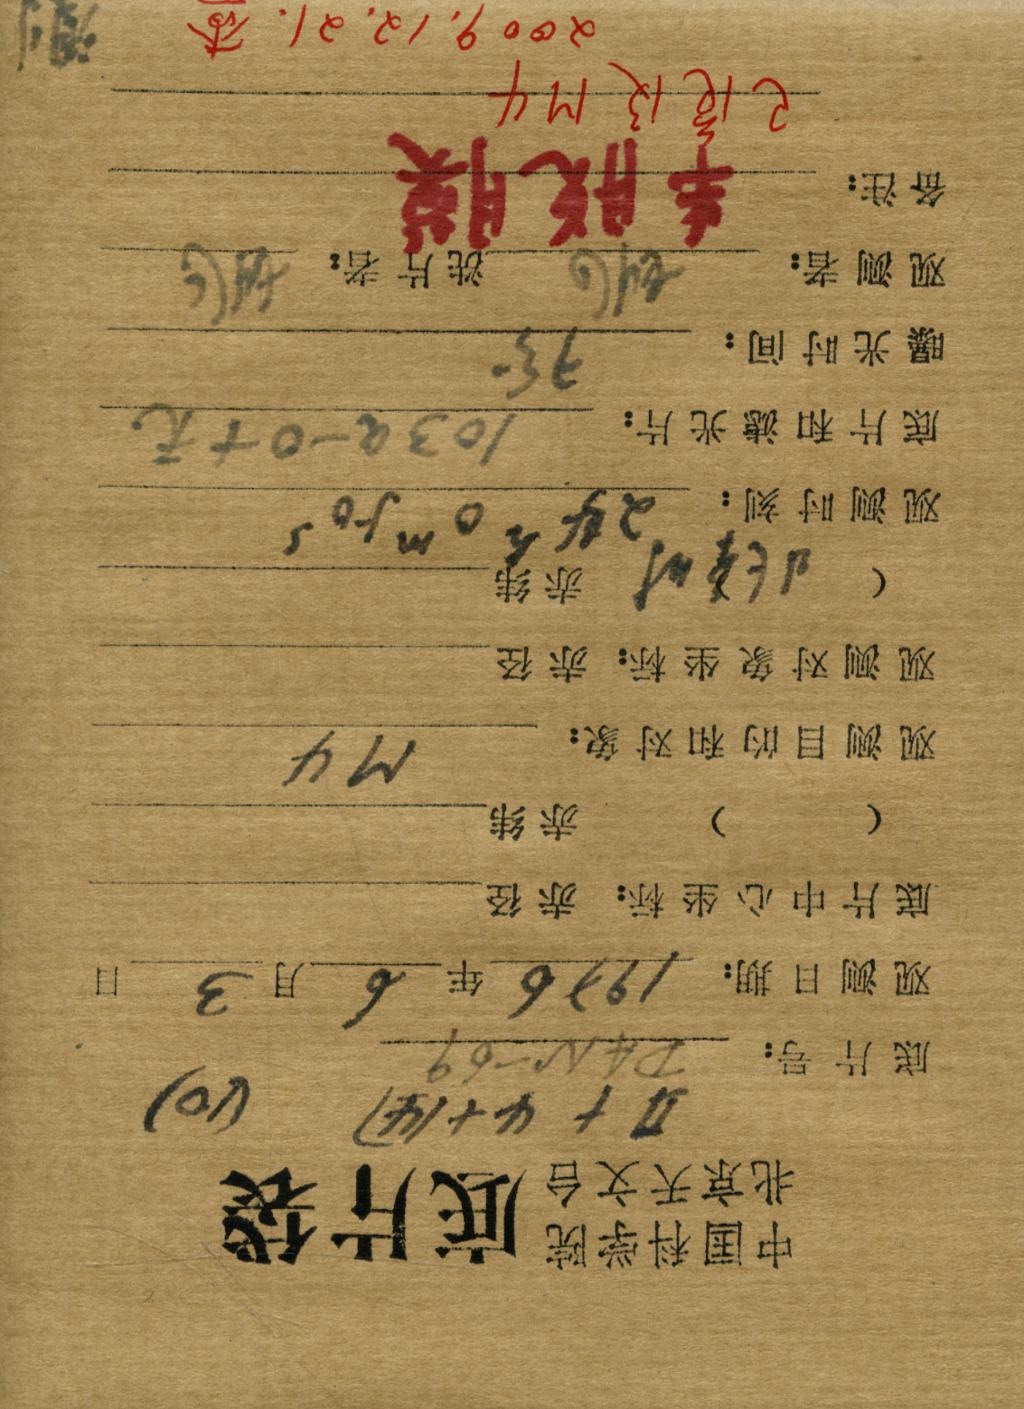 中国科学院
北京天文台 底片袋
II + 4 + 1(4) (10)
底片号:
观测日期: 1976 年 6 月 3 日
底片中心坐标: 赤径
( ) 赤纬
观测目的和对象: M4
观测对象坐标: 赤径
( 北京时 赤纬
观测时刻: 24h 0m 50s
底片和滤光片: 103a-0 + 无
曝光时间: 75
观测者: 洗片者:
备注: 未脱膜
已复议 M4
2009.12.21.